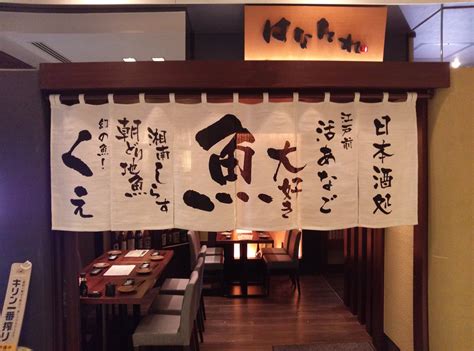 はなたれ
日本酒処
江戸前
活あなご
大好き
魚
湘南しらす
朝どり地魚
幻の魚!
くえ
キリン一番搾り